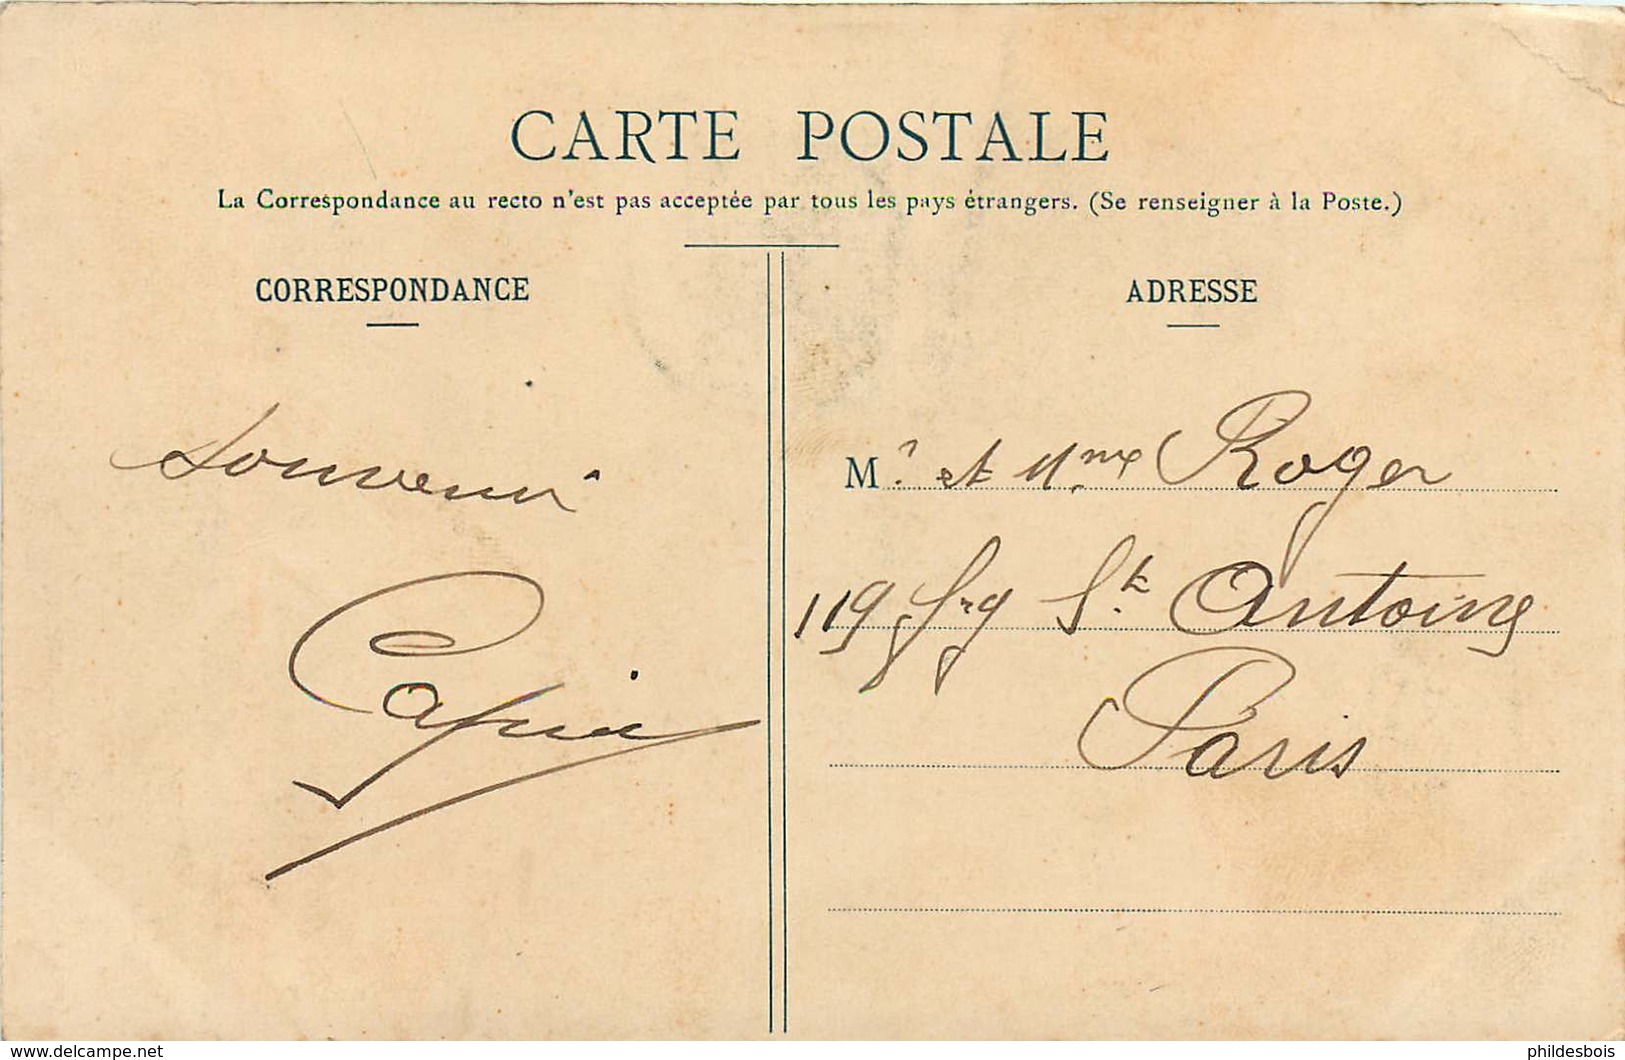 CARTE POSTALE
La Correspondance au recto n'est pas acceptée par tous les pays étrangers. (Se renseigner à la Poste.)
CORRESPONDANCE
souvenir
ADRESSE
Mr et Mme Roger
119 fg St Antoine
Paris
www.delcampe.net
phildesbois